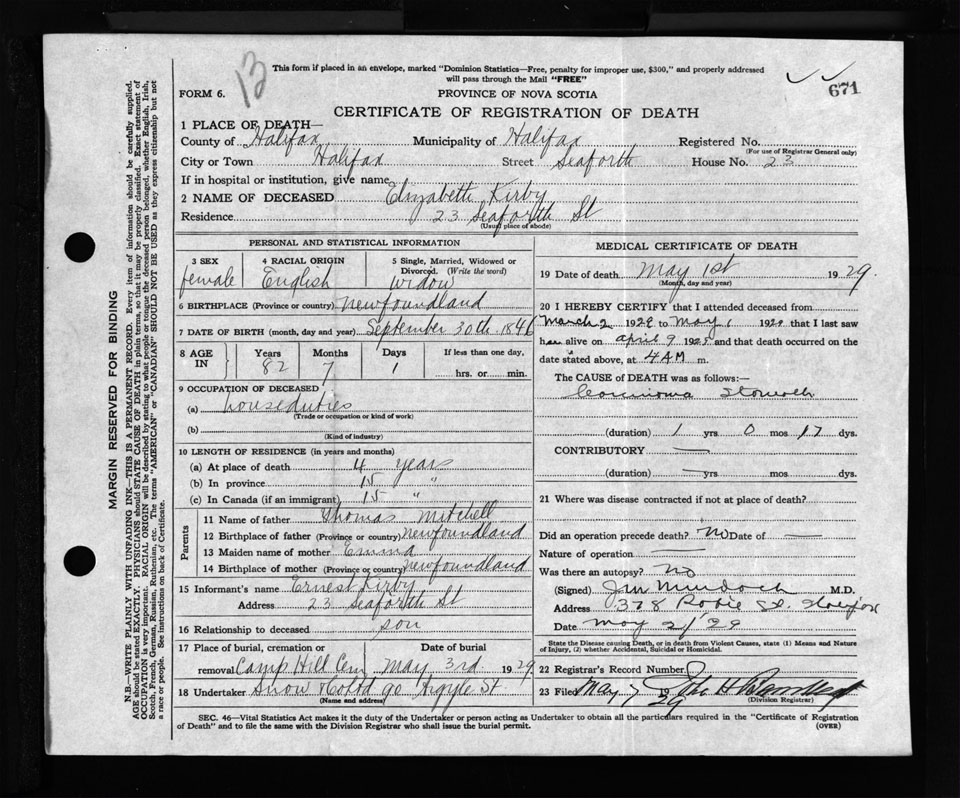 13
This form if placed in an envelope, marked "Dominion Statistics—Free, penalty for improper use, $300," and properly addressed
will pass through the Mail "FREE"
671
FORM 6.
PROVINCE OF NOVA SCOTIA
CERTIFICATE OF REGISTRATION OF DEATH
1 PLACE OF DEATH—
County of Halifax Municipality of Halifax Registered No.
(For use of Registrar General only)
City or Town Halifax Street Seaforth House No. 23
If in hospital or institution, give name
2 NAME OF DECEASED Elizabeth Kirby
Residence 23 Seaforth St
(Usual place of abode)
PERSONAL AND STATISTICAL INFORMATION
3 SEX 4 RACIAL ORIGIN 5 Single, Married, Widowed or
Divorced. (Write the word)
female English widow
6 BIRTHPLACE (Province or country) Newfoundland
7 DATE OF BIRTH (month, day and year) September 30th 1846
8 AGE IN Years Months Days If less than one day,
82 7 1 hrs. or min.
9 OCCUPATION OF DECEASED
(a) houseduties
(Trade or occupation or kind of work)
(b)
(Kind of industry)
10 LENGTH OF RESIDENCE (in years and months)
(a) At place of death 4 years
(b) In province 15 "
(c) In Canada (if an immigrant) 15 "
Parents
11 Name of father Thomas Mitchell
12 Birthplace of father (Province or country) Newfoundland
13 Maiden name of mother Emma
14 Birthplace of mother (Province or country) Newfoundland
15 Informant's name Ernest Kirby
Address 23 Seaforth St
16 Relationship to deceased son
17 Place of burial, cremation or Date of burial
removal Camp Hill Cem May 3rd 1929
18 Undertaker Snow & Co Ltd 90 Argyle St
(Name and address)
MEDICAL CERTIFICATE OF DEATH
19 Date of death May 1st 1929.
(Month, day and year)
20 I HEREBY CERTIFY that I attended deceased from
March 2 1929 to May 1 1929 that I last saw
her alive on April 9 192 and that death occurred on the
date stated above, at 4 AM m.
The CAUSE OF DEATH was as follows:—
Carcinoma Stomach
(duration) 1 yrs 0 mos 17 dys.
CONTRIBUTORY —
(duration) — yrs mos dys.
21 Where was disease contracted if not at place of death?
Did an operation precede death? No Date of —
Nature of operation —
Was there an autopsy? No
(Signed) Murdoch M.D.
Address 378 Robie St. Halifax
Date May 2/29
State the Disease causing Death, or in death from Violent Causes, state (1) Means and Nature
of Injury, (2) whether Accidental, Suicidal or Homicidal.
22 Registrar's Record Number
23 Filed May 7 1929
(Division Registrar)
SEC. 46—Vital Statistics Act makes it the duty of the Undertaker or person acting as Undertaker to obtain all the particulars required in the "Certificate of Registration
of Death" and to file the same with the Division Registrar who shall issue the burial permit.
(OVER)
MARGIN RESERVED FOR BINDING
N.B.—WRITE PLAINLY WITH UNFADING INK—THIS IS A PERMANENT RECORD. Every item of information should be carefully supplied.
AGE should be stated EXACTLY. PHYSICIANS should STATE CAUSE OF DEATH in plain terms, so that it may be properly classified. Exact statement of
OCCUPATION is very important. RACIAL ORIGIN will be described by stating to what people or tongue the deceased person belonged, whether English, Irish,
Scotch, French, German, Russian, Ruthenian, etc. The terms "AMERICAN" or "CANADIAN" SHOULD NOT BE USED as they express citizenship but not
a race or people. See instructions on back of Certificate.